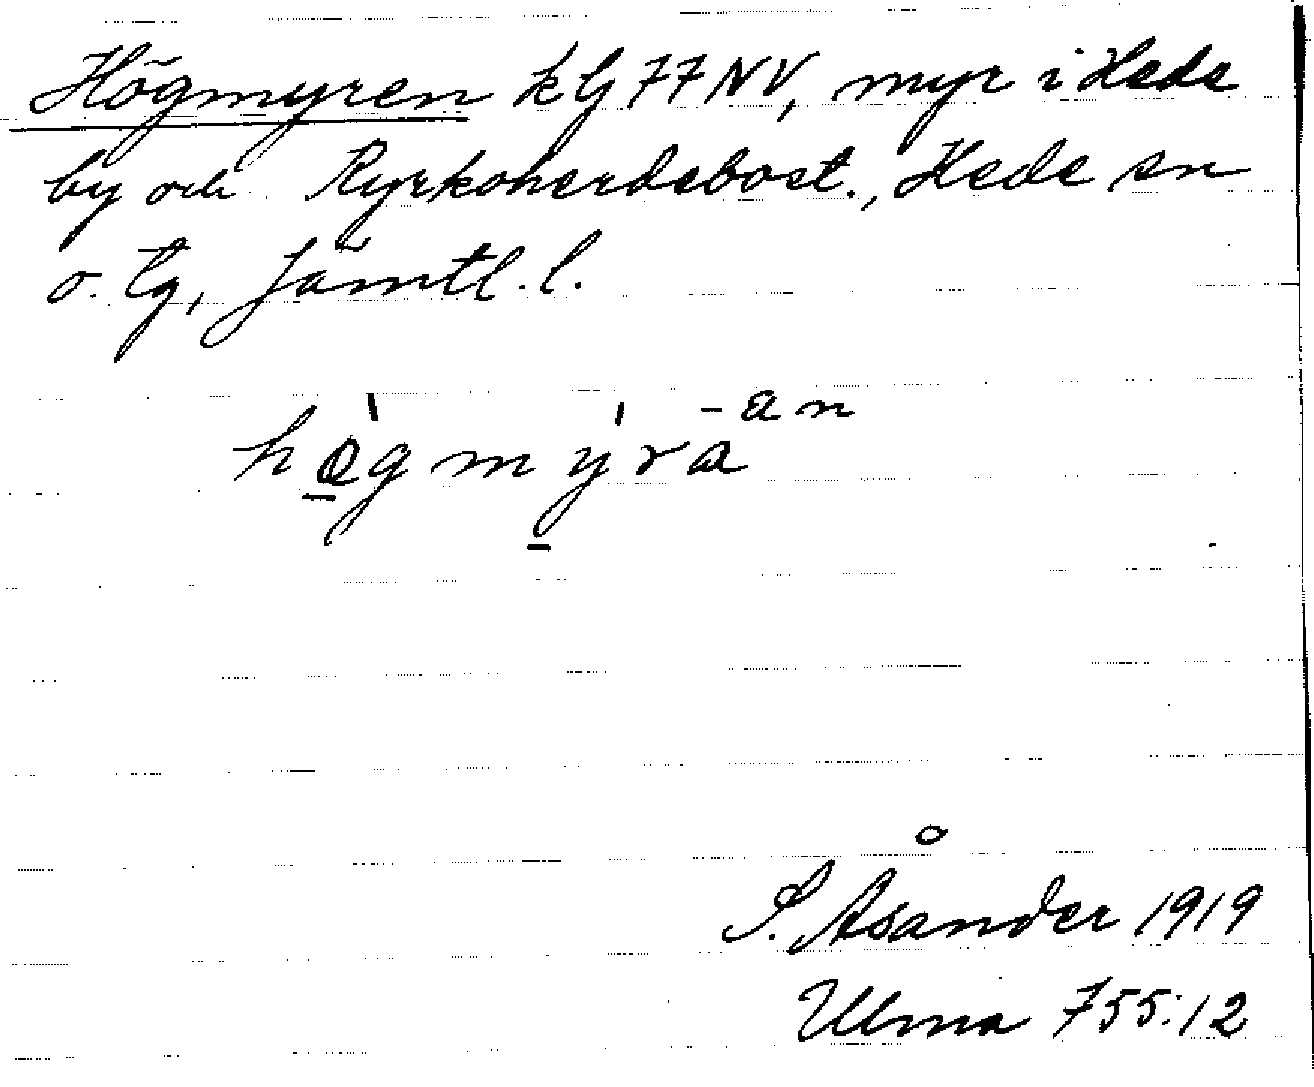 Högmyren kG77NV, myr i Hede
by och Kyrkoherdebost., Hede sn
o. tg, Jämtl. l.
-an
högmýra
S. Åsander 1919
Ulma 755:12